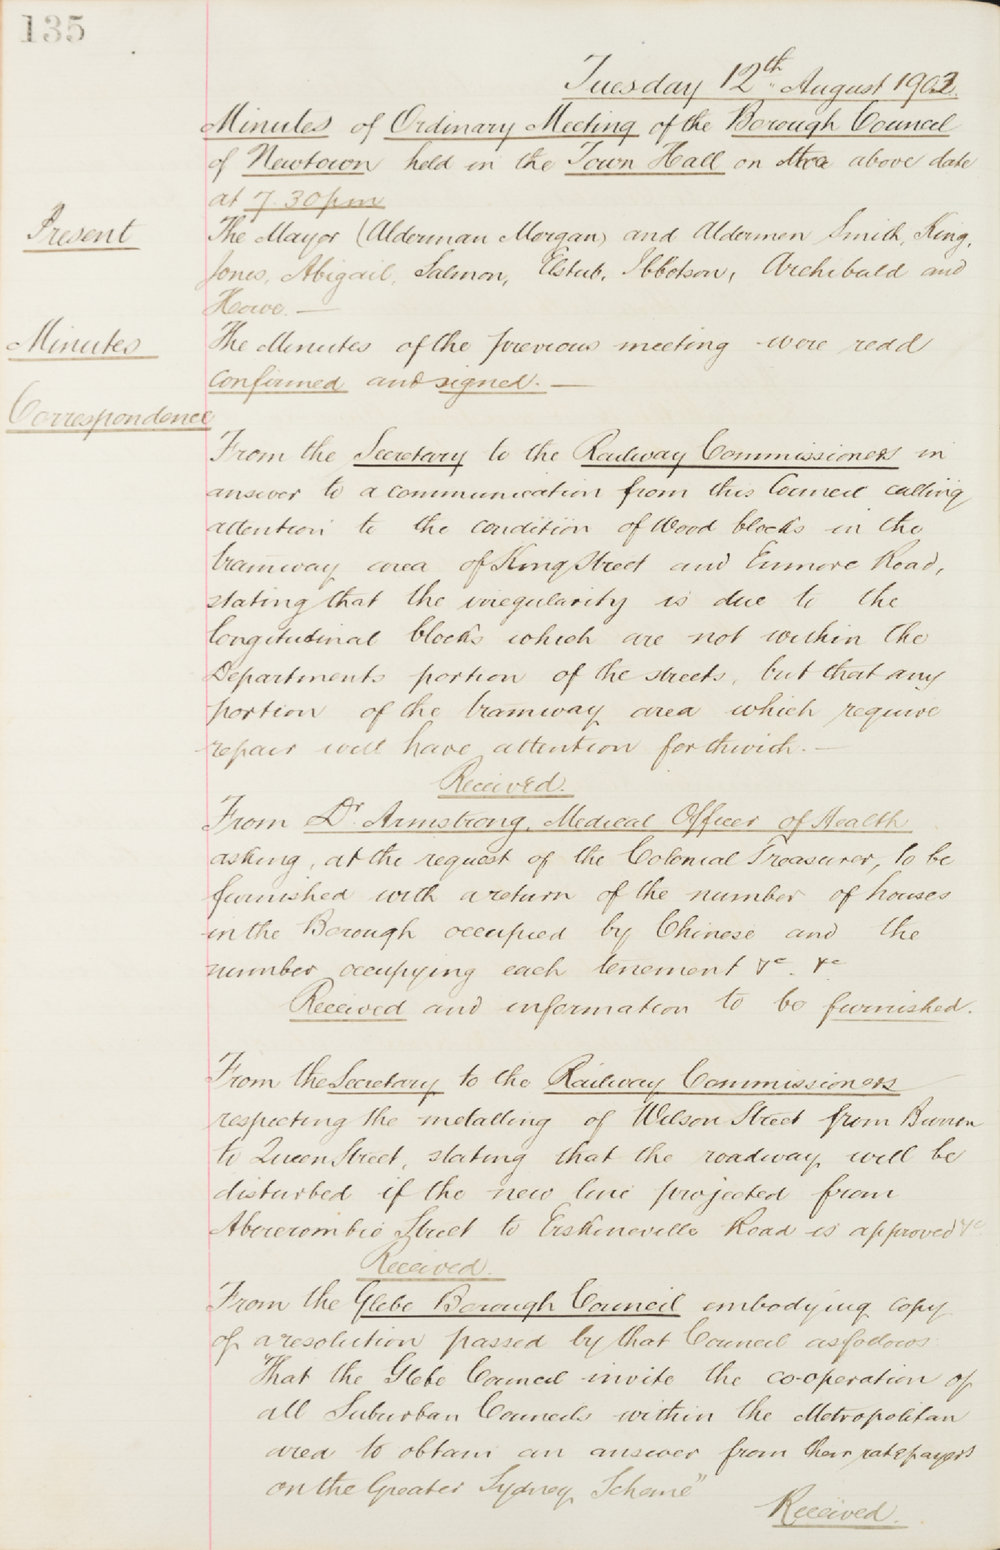 135
Tuesday 12th August 1902.
Minutes of Ordinary Meeting of the Borough Council
of Newtown held in the Town Hall on the above date
at 7.30pm
Present
The Mayor (Alderman Morgan) and Aldermen Smith, King,
Jones, Abigail, Salmon, Elstub, Ibbotson, Archibald and
Howe. —
Minutes
The Minutes of the previous meeting were read
confirmed and signed. —
Correspondence
From the Secretary to the Railway Commissioners in
answer to a communication from this Council calling
attention to the condition of Wood blocks in the
tramway area of King Street and Enmore Road,
stating that the irregularity is due to the
longitudinal blocks which are not within the
Departments portion of the streets, but that any
portion of the tramway area which require
repair will have attention forthwith. —
Received.
From Dr. Armstrong, Medical Officer of Health
asking, at the request of the Colonial Treasurer, to be
furnished with a return of the number of houses
in the Borough occupied by Chinese and the
number occupying each tenement &c. &c
Received and information to be furnished.
From the Secretary to the Railway Commissioners
respecting the metalling of Wilson Street from Burren
to Queen Street, stating that the roadway will be
disturbed if the new line projected from
Abercrombie Street to Erskineville Road is approved &c
Received.
From the Glebe Borough Council embodying copy
of a resolution passed by that Council as follows
That the Glebe Council invite the co-operation of
all Suburban Councils within the Metropolitan
area to obtain an answer from their ratepayers
on the Greater Sydney Scheme"
Received.